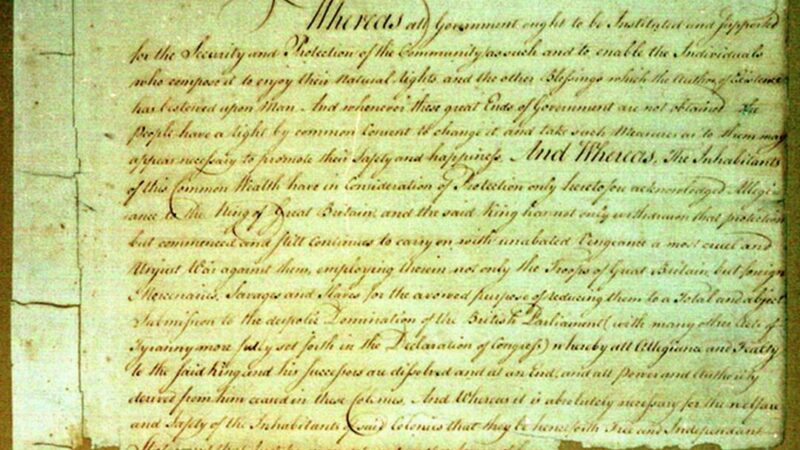 Whereas all Government ought to be Instituted and supported
for the Security and Protection of the Community as such and to enable the Individuals
who compose it to enjoy their Natural Rights and the other Blessings which the Author of Existence
has bestowed upon Man. And whenever these great Ends of Government are not obtained the
people have a right by common Consent to change it, and take such Measures as to them may
appear necessary to promote their Safety and happiness. And Whereas, The Inhabitants
of this Common Wealth have in Consideration of Protection only heretofore acknowledged Allegi
ance to the King of Great Britain, and the said King has not only withdrawn that protection
but commenced and still continues to carry on with unabated Vengeance a most cruel and
Unjust War against them, employing therein not only the Troops of Great Britain, but foreign
Mercenaries, Savages and Slaves for the avowed purpose of reducing them to a Total and abject
Submission to the despotic Domination of the British Parliament (with many other Acts of
Tyranny more fully set forth in the Declaration of Congress) whereby all Allegiance and Fealty
to the said King and his Successors are dissolved and at an End, and all power and Authority
derived from him ceased in these Colonies. And Whereas it is absolutely necessary for the welfare
and Safety of the Inhabitants of said Colonies that they be henceforth Free and Independent